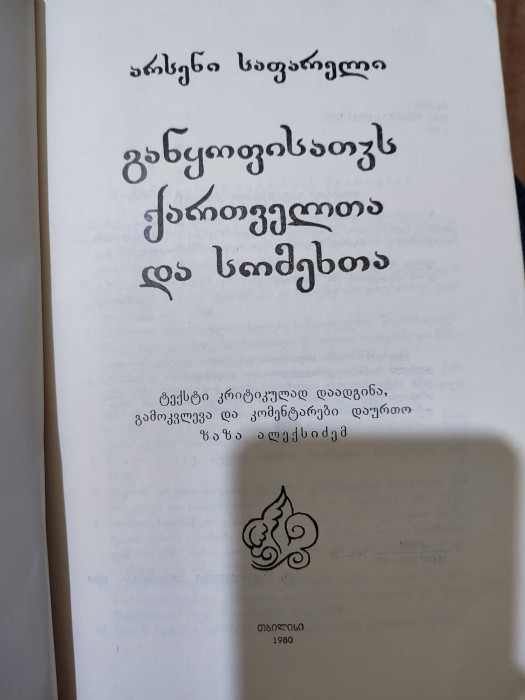 არსენი საფარელი
განყოფისათჳს
ქართველთა
და სომეხთა
ტექსტი კრიტიკულად დაადგინა,
გამოკვლევა და კომენტარები დაურთო
ზაზა ალექსიძემ
თბილისი
1980